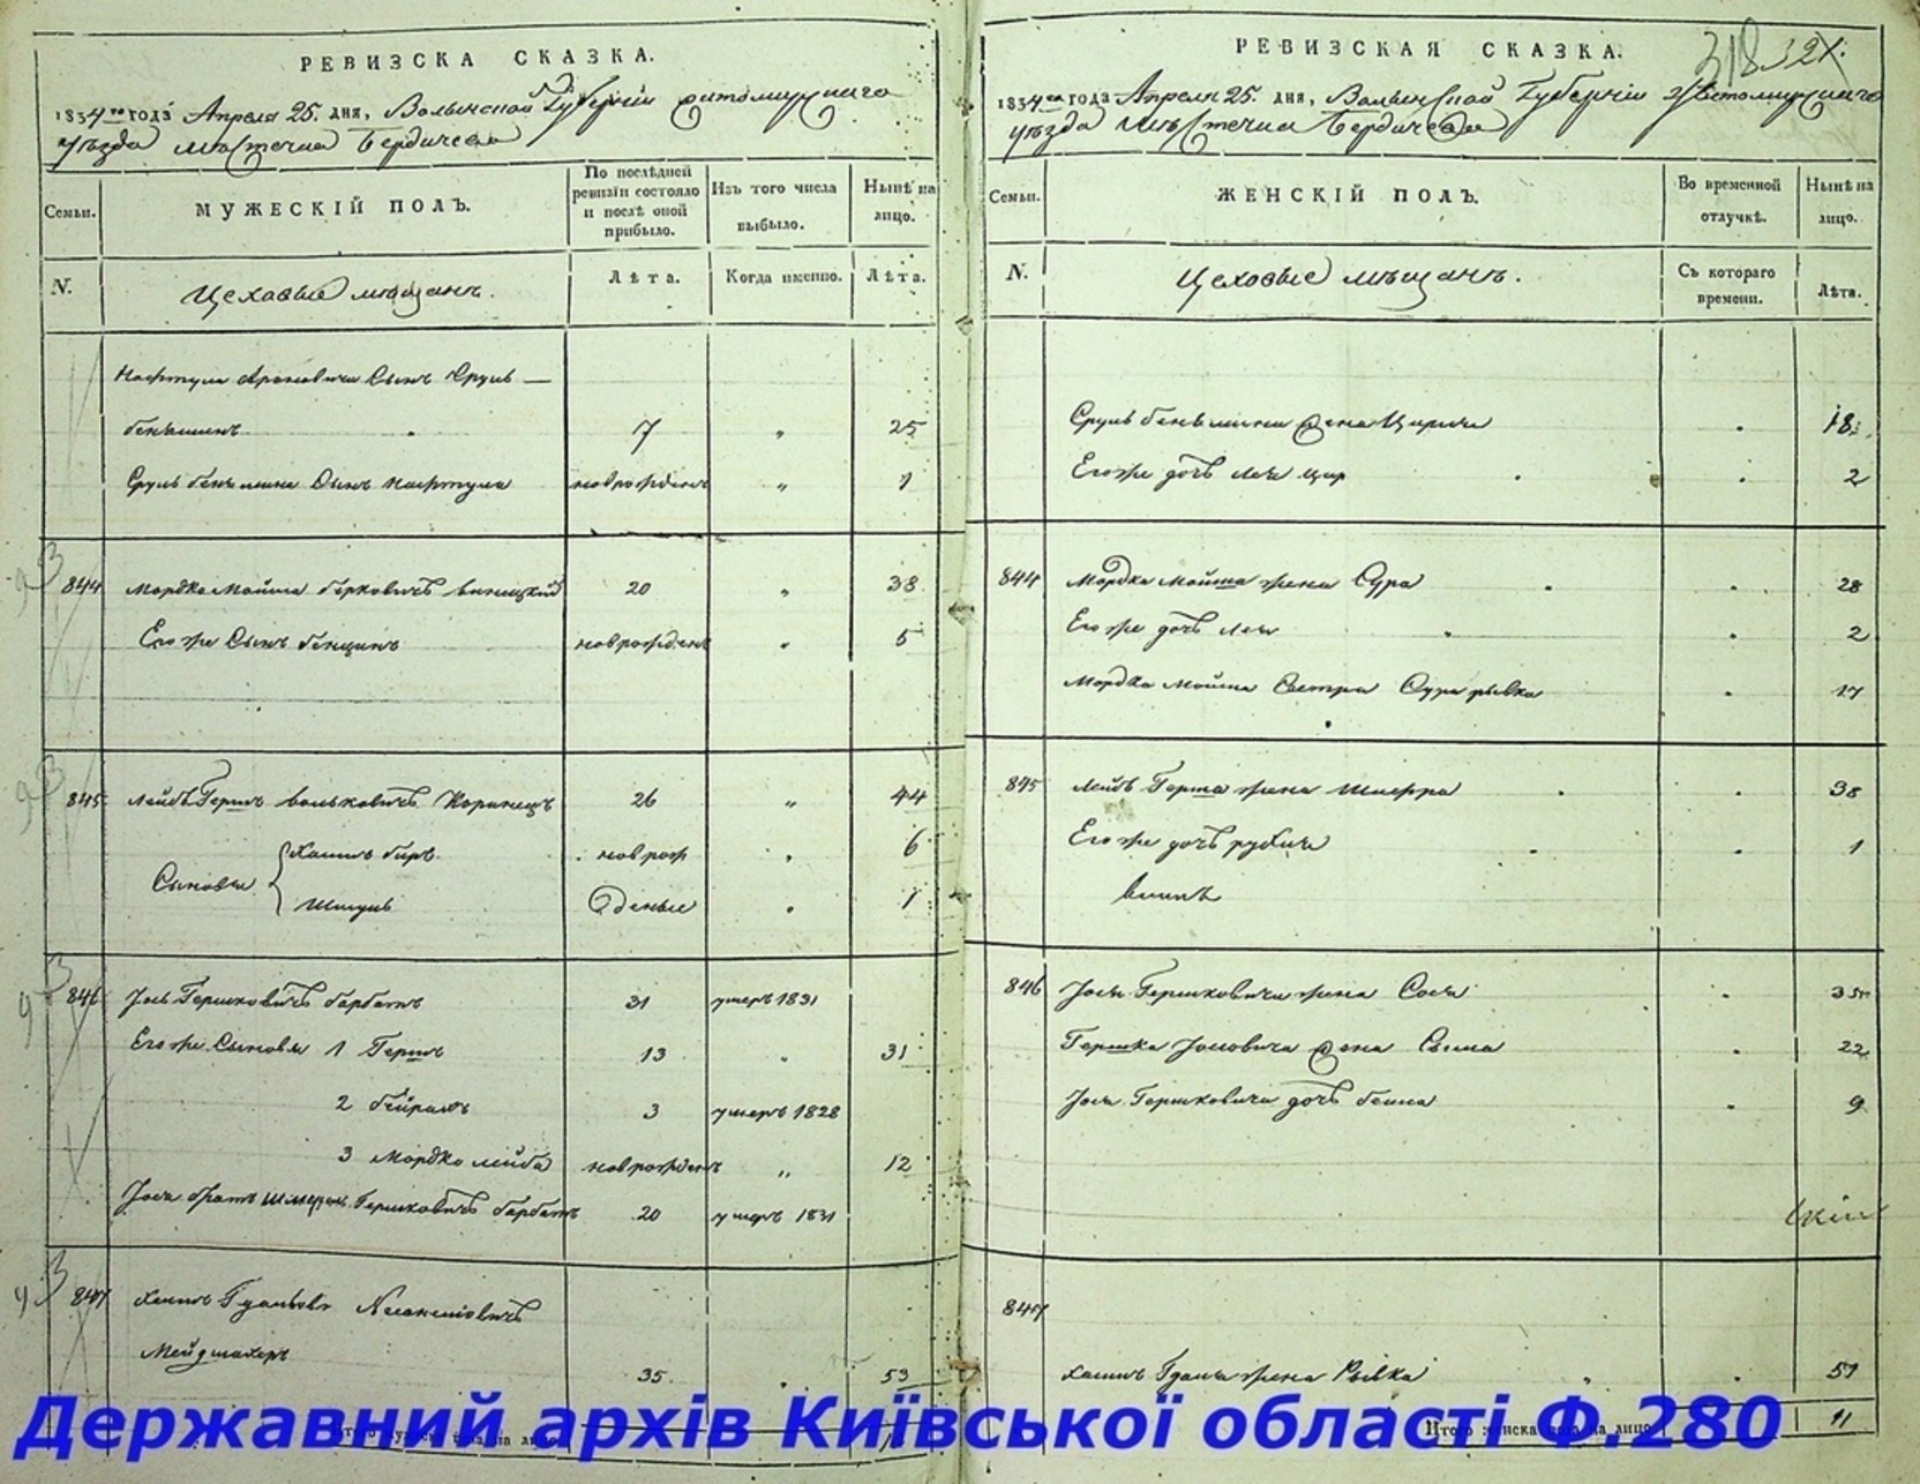 РЕВИЗСКА СКАЗКА.
1834го года Апреля 25. дня, Волынской Губерніи Житомирскаго
уѣзда мѣстечка Бердичева
Семьи.
МУЖЕСКІЙ ПОЛЪ.
По послѣдней ревизіи состояло и послѣ оной прибыло.
Изъ того числа выбыло.
Нынѣ на лицо.
N.
Цеховые мѣщанъ.
Лѣта.
Когда именно.
Лѣта.
Нафтула Ароновича Сынъ Сруль —
беньминъ 7 „ 25
Сруль беньмина Сынъ Нафтула новрожденъ „ 1
844 Мордко Мойша берковичъ виницкій 20 „ 38
Его же Сынъ бенционъ новрожденъ „ 5
845 Лейбъ Гершъ вольковичъ Коринецъ 26 „ 44
Сыновья новрож „ 6
Шмуль денные „ 1
846 Іось Гершковичъ барбатъ 31 умеръ 1831
Его же Сыновья 1 Гершъ 13 „ 31
2 3 умеръ 1828
3 Мордко лейба новрожденъ „ 12
Іося братъ Гершковичъ барбатъ 20 умеръ 1831
847 Хаимъ
35 53
РЕВИЗСКАЯ СКАЗКА.
318 321.
1834го года Апреля 25. дня, Волынской Губерніи Житомирскаго
уѣзда мѣстечка Бердичева
Семьи.
ЖЕНСКІЙ ПОЛЪ.
Во временной отлучкѣ.
Нынѣ на лицо.
N.
Цеховые мѣщанъ.
Съ котораго времени.
Лѣта.
Сруль беньмина жена 18
Его же дочь 2
844 Мордка Мойша жена Сура 28
Его же дочь лея 2
Мордка Мойша Сестра Сура рывка 17
845 Лейбъ Герша жена Шифра 38
Его же дочь 1
846 Іося Гершковича жена Сося 35
Гершка Іосовича жена Сима 22
Іося Гершковича дочь бейла 9
847
Хаимъ жена Рывка 51
Итого женска пола на лицо 11
Державний архів Київської області Ф.280